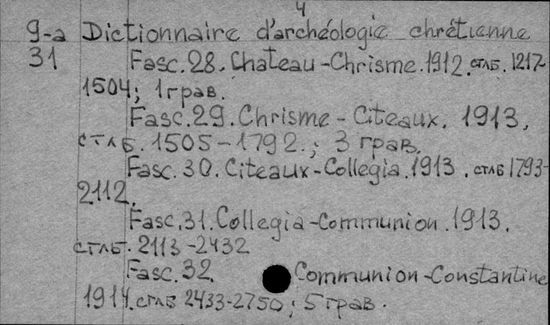 4
9-a Dictionnaire d'archéologie chrétienne
31 Fasc. 28. Chateau-Chrisme. 1912. стлб. 1217-
1504; 1 грав.
Fasc. 29. Chrisme - Citeaux. 1913.
стлб. 1505-1792.; 3 грав.
Fasc. 30. Citeaux-Collegia. 1913. стлб 1793-
2112.
Fasc. 31. Collegia-Communion. 1913.
стлб. 2113-2432
Fasc. 32. Communion-Constantine
1914. стлб 2433-2750; 5 грав.